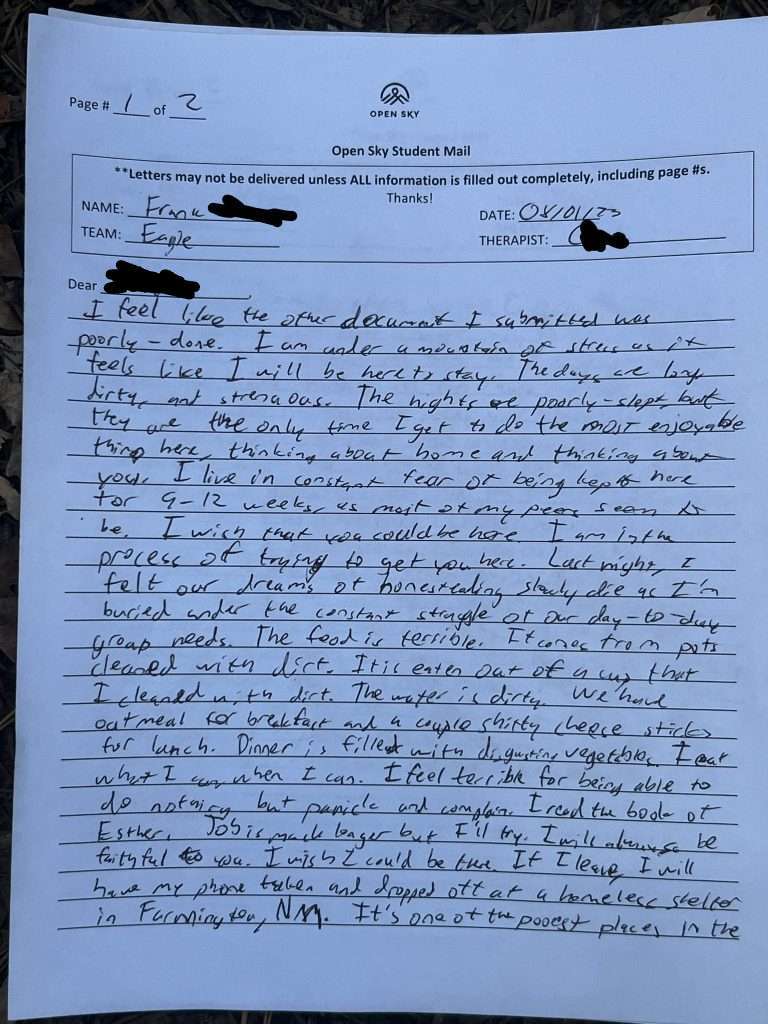 Page # 1 of 2
OPEN SKY
Open Sky Student Mail
**Letters may not be delivered unless ALL information is filled out completely, including page #s.
Thanks!
NAME: Frank
DATE: 08/01/23
TEAM: Eagle
THERAPIST:
Dear
I feel like the other document I submitted was
poorly-done. I am under a mountain of stress as it
feels like I will be here to stay. The days are long
dirty, and strenuous. The nights are poorly-slept, but
they are the only time I get to do the most enjoyable
thing here, thinking about home and thinking about
you. I live in constant fear of being kept here
for 9-12 weeks, as most of my peers seem to
be. I wish that you could be here. I am in the
process of trying to get you here. Last night, I
felt our dreams of homesteading slowly die as I'm
buried under the constant struggle of our day-to-day
group needs. The food is terrible. It comes from pots
cleaned with dirt. It is eaten out of a cup that
I cleaned with dirt. The water is dirty. We have
oatmeal for breakfast and a couple shitty cheese sticks
for lunch. Dinner is filled with disgusting vegetables. I eat
what I can, when I can. I feel terrible for being able to
do nothing but panick and complain. I read the book of
Esther. Job is much longer but I'll try. I will always be
faithful to you. I wish I could be there. If I leave, I will
have my phone taken and dropped off at a homeless shelter
in Farmington, NM. It's one of the poorest places in the